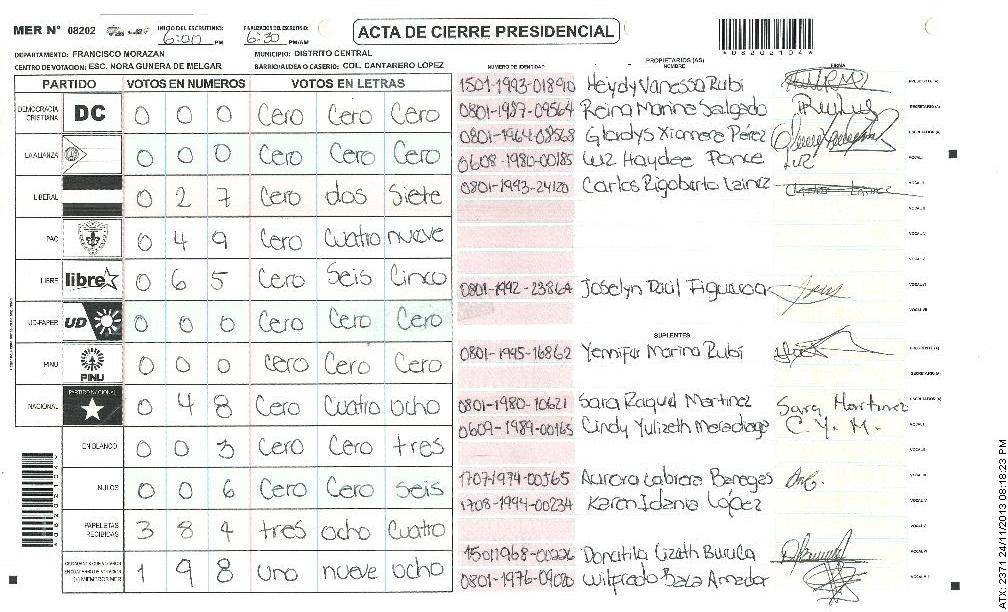 MER N° 08202
INICIO DEL ESCRUTINIO: 6:00 PM
FINALIZACION DEL ESCRUTINIO: 6:30 PM/AM
ACTA DE CIERRE PRESIDENCIAL
DEPARTAMENTO: FRANCISCO MORAZAN
MUNICIPIO: DISTRITO CENTRAL
CENTRO DE VOTACION: ESC. NORA GUNERA DE MELGAR
BARRIO/ALDEA O CASERIO: COL. CANTARERO LOPEZ
PARTIDO VOTOS EN NUMEROS VOTOS EN LETRAS
DEMOCRACIA CRISTIANA DC 0 0 0 Cero Cero Cero
LA ALIANZA 0 0 0 Cero Cero Cero
LIBERAL 0 2 7 Cero dos Siete
PAC 0 4 9 Cero Cuatro nueve
LIBRE libre 0 6 5 Cero Seis Cinco
UD-FAPER UD 0 0 0 Cero Cero Cero
PINU PINU 0 0 0 Cero Cero Cero
NACIONAL PARTIDO NACIONAL 0 4 8 Cero Cuatro ocho
EN BLANCO 0 0 3 Cero Cero tres
NULOS 0 0 6 Cero Cero seis
PAPELETAS RECIBIDAS 3 8 4 tres ocho Cuatro
1 9 8 uno nueve ocho
NUMERO DE IDENTIDAD PROPIETARIOS (AS) NOMBRE FIRMA
1501-1993-01890 Heydy Vanessa Rubi
0801-1987-09564 Reina Marina Salgado
0801-1964-08568 Gladys Xiomara Pérez
0608-1980-00185 Luz Haydee Ponce Luz
0801-1993-24120 Carlos Rigoberto Lainez
0801-1992-23864 Joselyn Figueroa
SUPLENTES
0801-1995-16862 Yennifer Marina Rubí
0801-1980-10621 Sara Raquel Martinez Sara Martinez
0609-1989-00165 Cindy Yulizeth C. Y. M.
1707-1974-00565 Aurora Cabrera Banegas
1708-1994-00234 Karen Idania López
15011968-00226 Donatila Lizeth
0801-1976-09020 Wilfredo Baza Amador
* 0 8 2 0 2 1 0 4 *
ATX: 2371 24/11/2013 08:18:23 PM